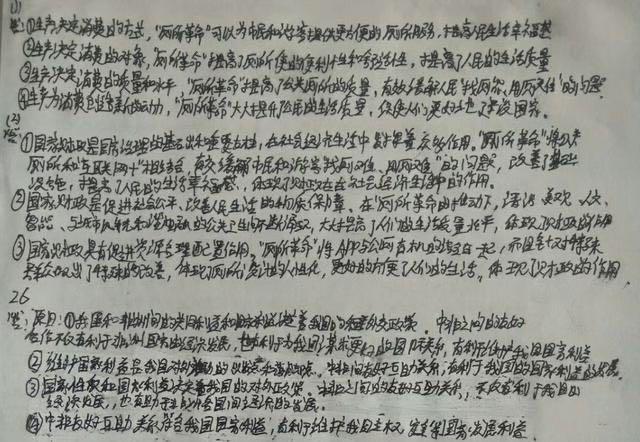 (1)
答:①生产决定消费的方式,"厕所革命"可以为市民和游客提供更方便的厕所服务,提高人民生活幸福感
②生产决定消费的对象,"厕所革命"提高了厕所使用的便利性和舒适性,提高了人民的生活质量
③生产决定消费的质量和水平,"厕所革命"提高了公共厕所的质量,有效缓解人民"找厕难、用厕难"的问题
④生产为消费创造动力,"厕所革命"大大提升人民的生活质量,促使人们更好地建设国家。
(2)
答:①国家财政是国家治理的基础和重要支柱,在社会经济生活中发挥着作用。"厕所革命"将公共
厕所和"互联网+"相结合,有效缓解市民和游客找厕难、用厕难"的问题,改善了基础
设施,提高了人民的生活幸福感,体现了财政在社会经济生活中的作用。
②国家财政是促进社会公平、改善人民生活的物质保障。在"厕所革命"的推动下,
大大提高了人们的生活质量水平,体现了财政的作用
③国家财政具有促进资源合理配置作用。"厕所革命"将APP与公网有机的结合在一起,而且针对特殊
人群做出了特殊的改善,体现了厕所设计的人性化,更好的方便了人们的生活。体现了财政的作用
26
答:原因:①我国和非洲间的共同利益和国家利益决定着我国的外交政策。中非之间的友好
合作不仅有利于非洲国家的发展,也有利于为我国谋求更好的国际关系,有利于维护我国国家利益
②维护国家利益是我国对外活动的出发点和落脚点。中非间友好互助关系,有利于我国的国家利益的发展。
③国家性质和国家利益决定着我国的对外政策。中非之间的友好互助关系,不仅有利于我国
经济发展,也有助于非洲各国间经济的发展。
④中非友好互助关系符合我国国家利益,有利于维护我国主权,安全和国家发展利益